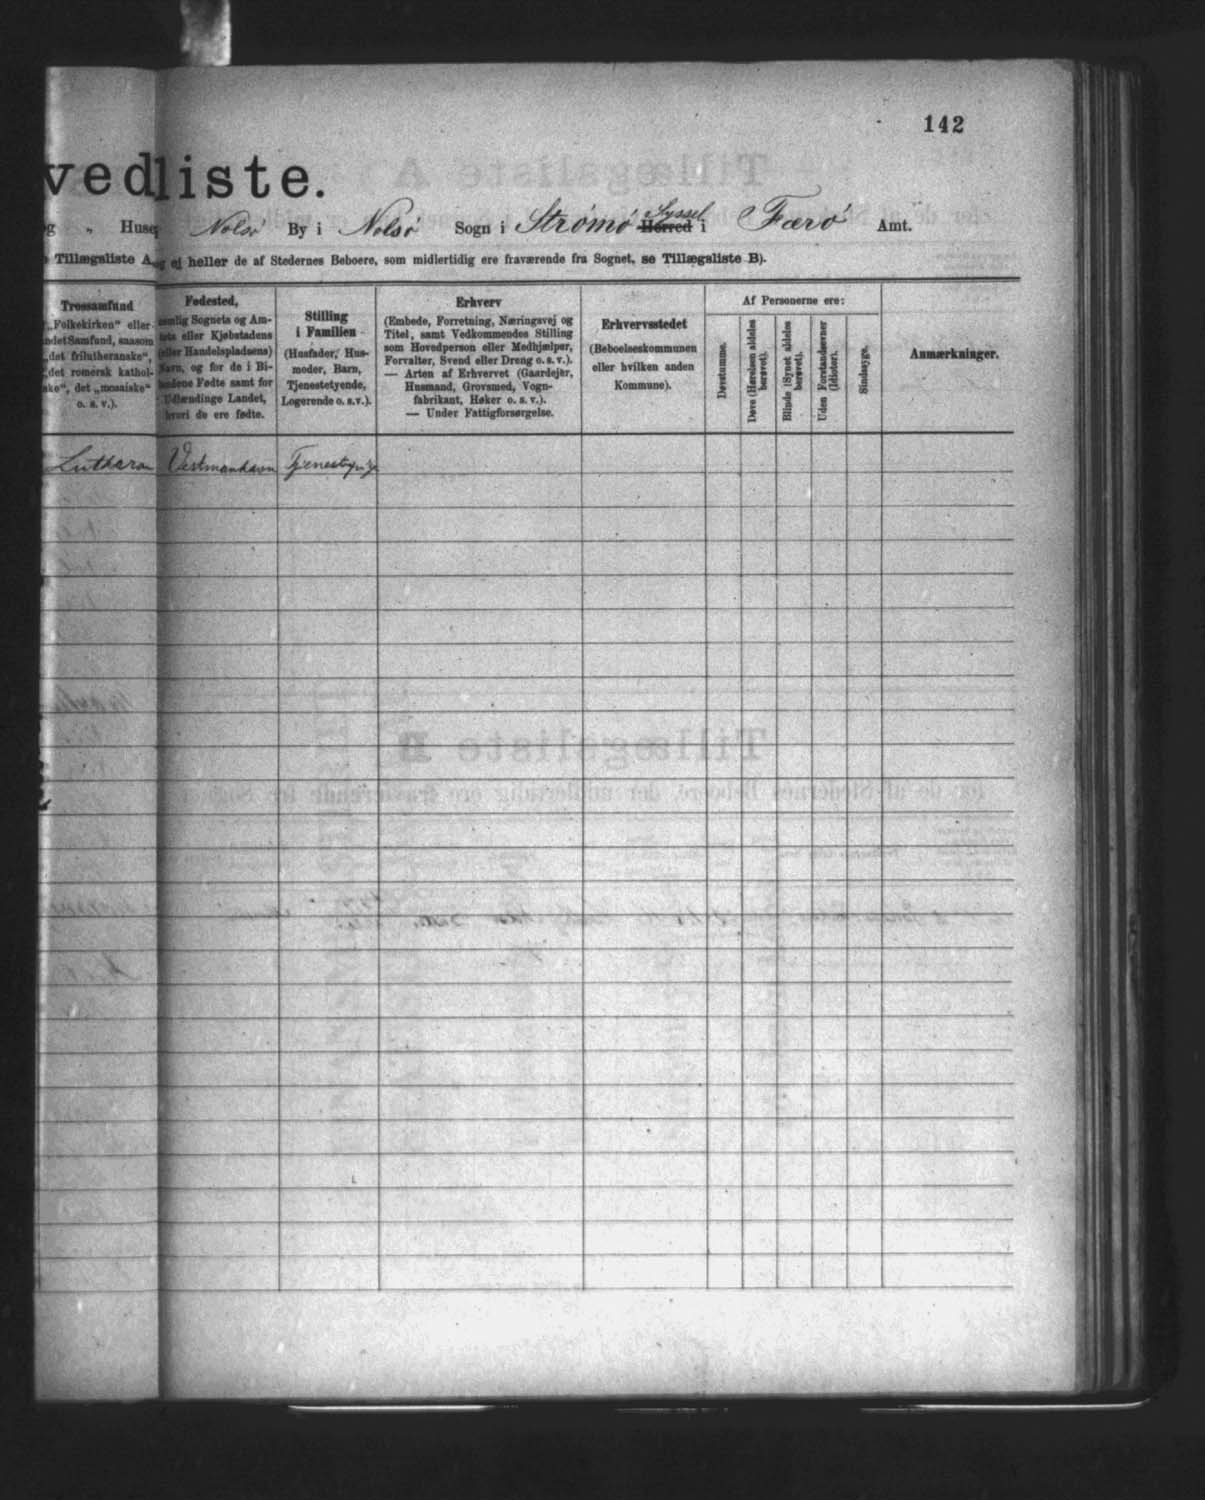 142
vedliste.
g „ Huse Nolsø By i Nolsø Sogn i Strømø Syssel Herred i Færø Amt.
Tillægsliste A, og ej heller de af Stedernes Beboere, som midlertidig ere fraværende fra Sognet, se Tillægsliste B).
Trossamfund
„Folkekirken“ eller
ndet Samfund, saasom
„det frilutheranske“,
„det romersk kathol-
ske“, det „mosaiske“
o. s. v.).
Fødested,
nemlig Sognets og Am-
tets eller Kjøbstadens
(eller Handelspladsens)
Navn, og for de i Bi-
landene Fødte samt for
Udlændinge Landet,
hvori de ere fødte.
Stilling
i Familien
(Husfader, Hus-
moder, Barn,
Tjenestetyende,
Logerende o. s. v.).
Erhverv
(Embede, Forretning, Næringsvej og
Titel, samt Vedkommendes Stilling
som Hovedperson eller Medhjælper,
Forvalter, Svend eller Dreng o. s. v.).
— Arten af Erhvervet (Gaardejer,
Husmand, Grovsmed, Vogn-
fabrikant, Høker o. s. v.).
— Under Fattigforsørgelse.
Erhvervsstedet
(Beboelseskommunen
eller hvilken anden
Kommune).
Af Personerne ere:
Døvstumme.
Døve (Hørelsen aldeles
berøvet).
Blinde (Synet aldeles
berøvet).
Uden Forstandsevner
(Idioter).
Sindssyge.
Anmærkninger.
Lutheran Vestmanhavn
Tillægsliste A
Tillægsliste B
for de af Stedernes Beboere, der midlertidig ere fraværende fra Sognet